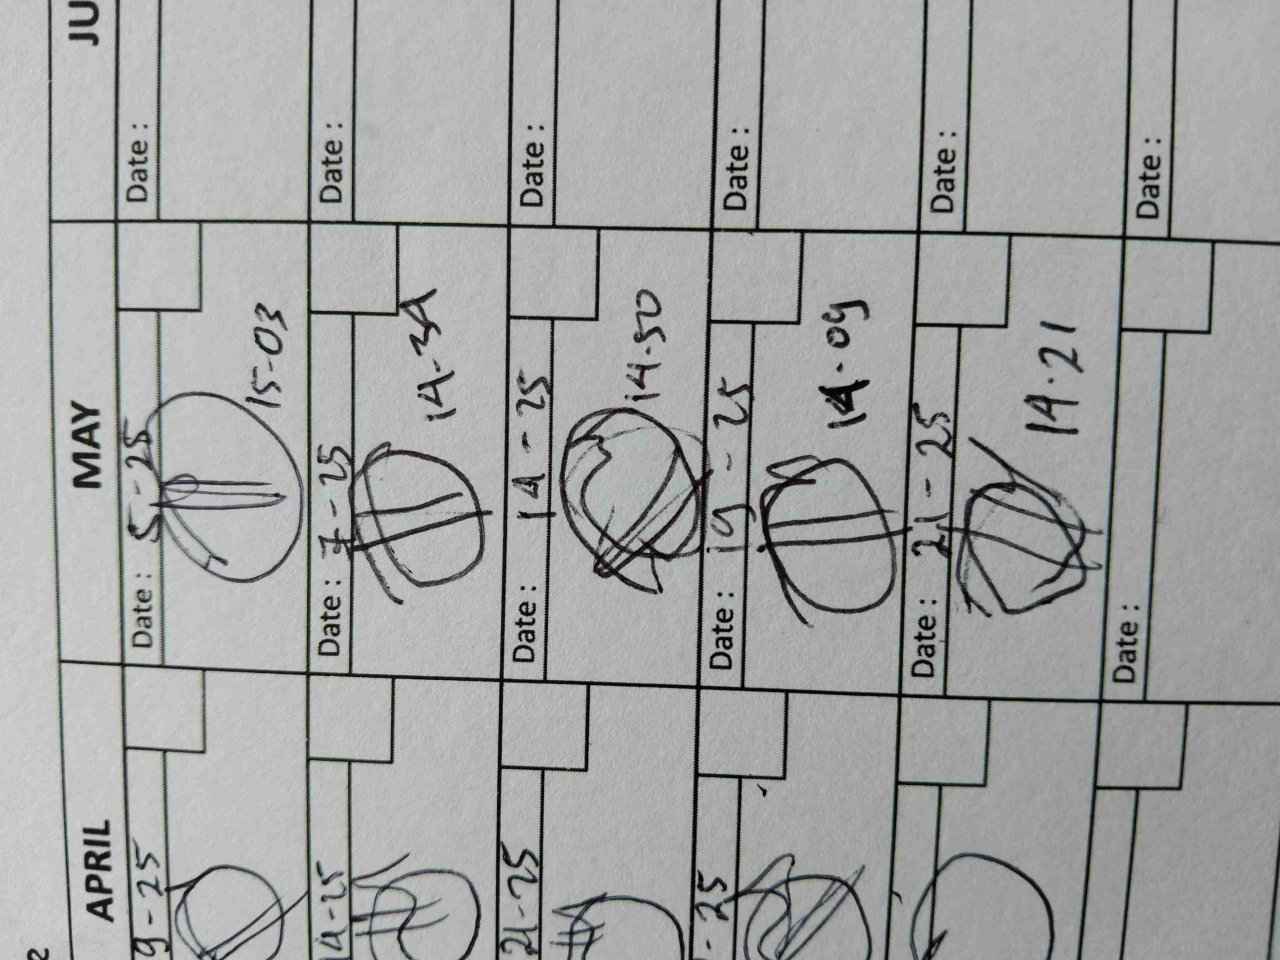 APRIL
MAY
JU
9-25
Date: 5-25
15-03
Date:
14-25
Date: 7-25
14-34
Date:
21-25
Date: 14-25
14.50
Date:
-25
Date: 19-25
14.09
Date:
Date: 21-25
14.21
Date:
Date:
Date:
2